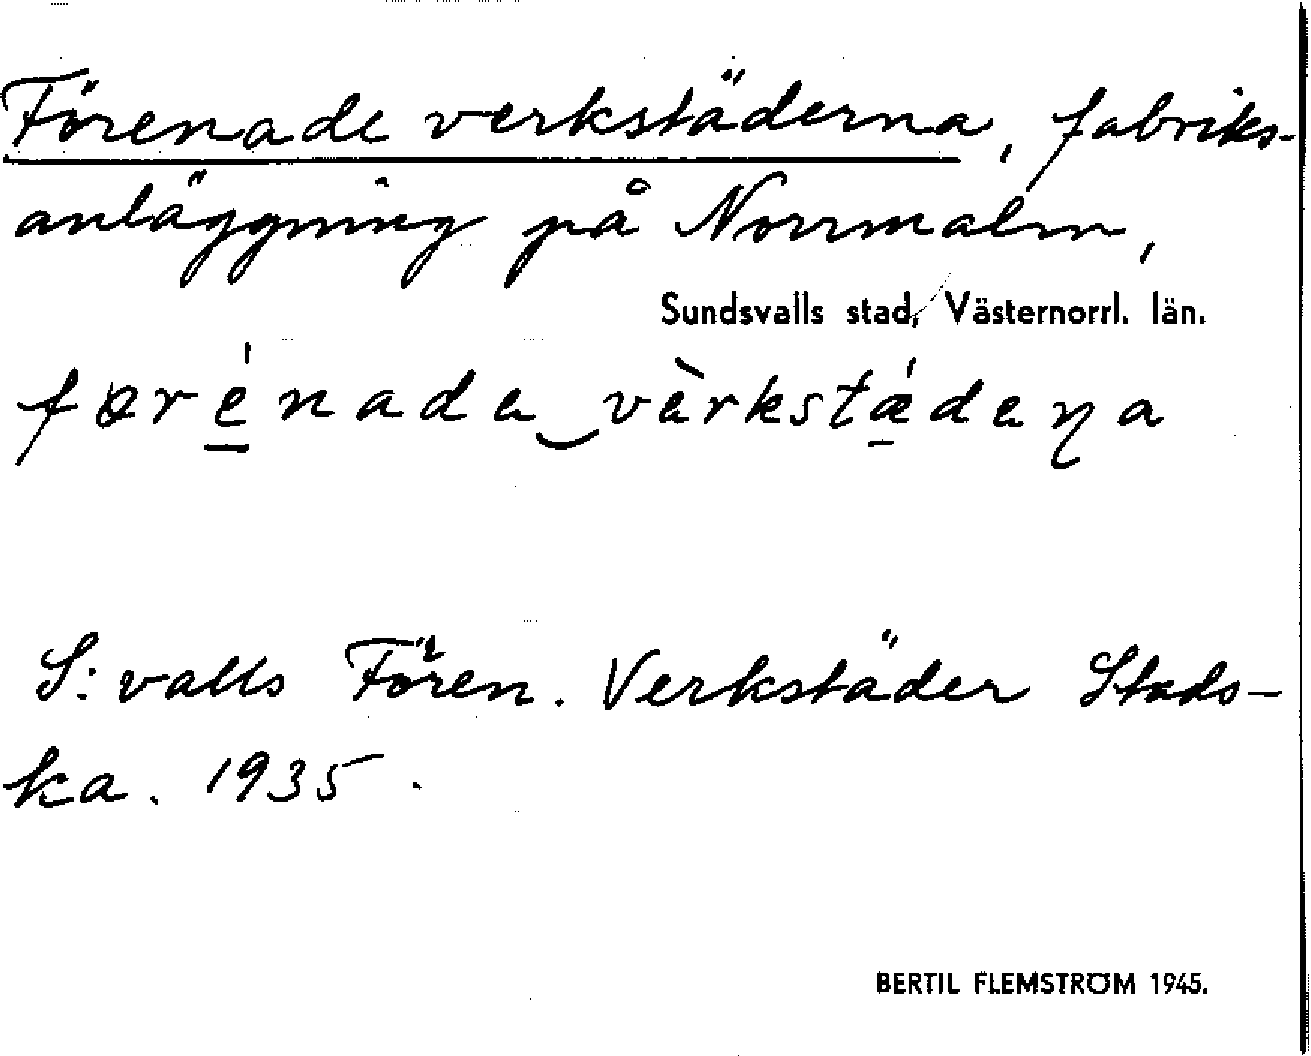 Förenade verkstäderna, fabriks-
anläggning på Norrmalm,
Sundsvalls stad, Västernorrl. län.
føré̱nada‿vèrkstǽ̱daɳa
S:valls Fören. Verkstäder Stads-
ka. 1935.
BERTIL FLEMSTRÖM 1945.